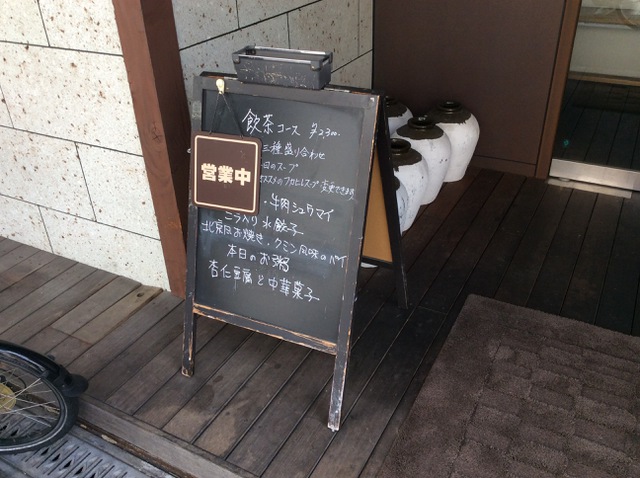 飲茶コース ¥2,300-
三種盛り合わせ
日のスープ
オススメのフカヒレスープ 変更できます
営業中
・牛肉シュウマイ
ニラ入り水餃子
北京風お焼き・クミン風味のパイ
本日のお粥
杏仁豆腐と中華菓子